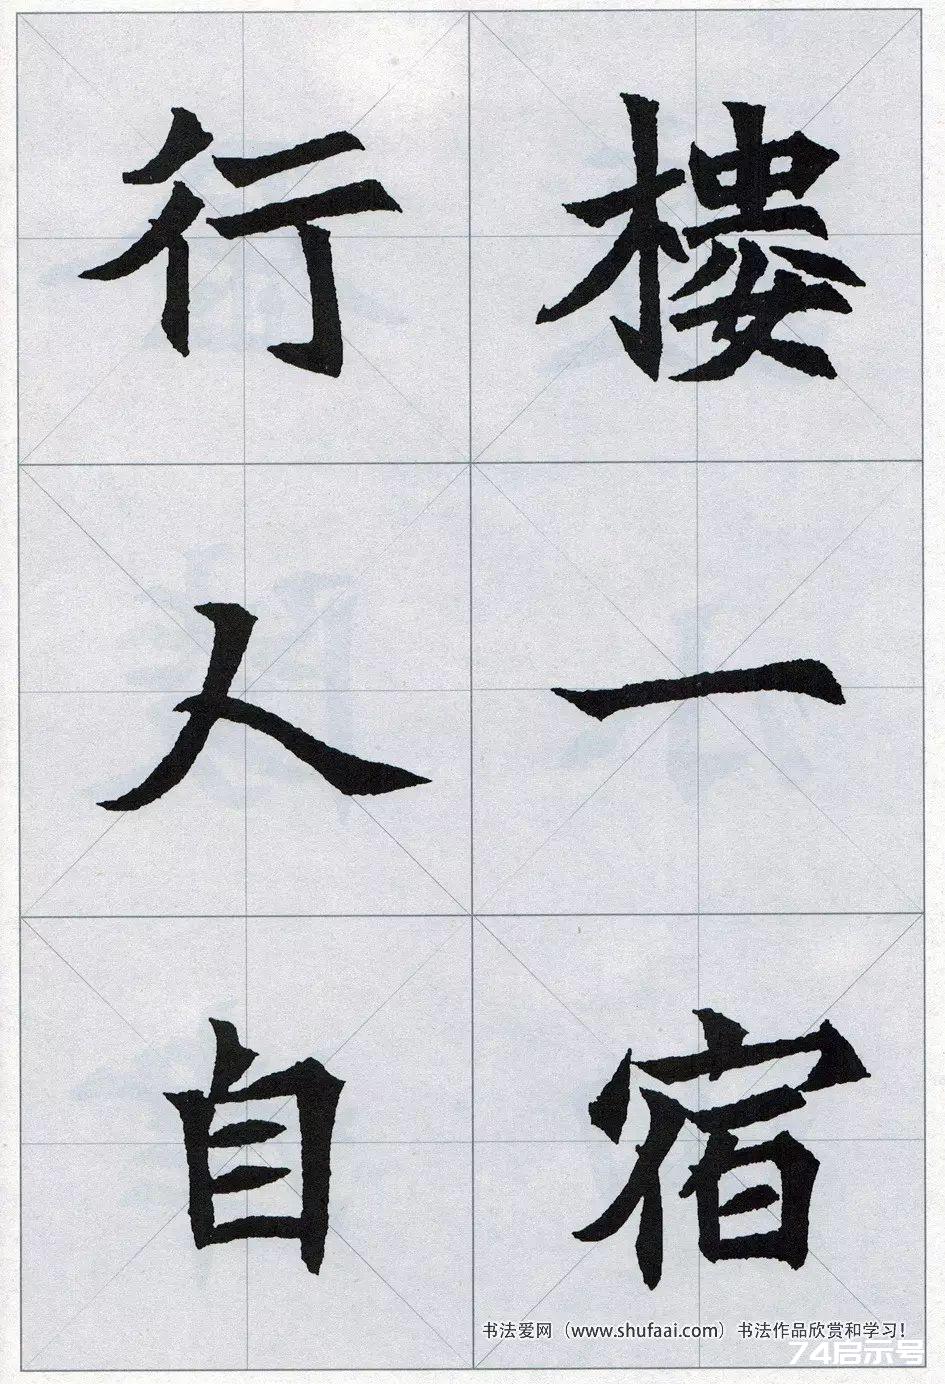 樓一宿
行人自
书法爱网（www.shufaai.com）书法作品欣赏和学习！
74启示号